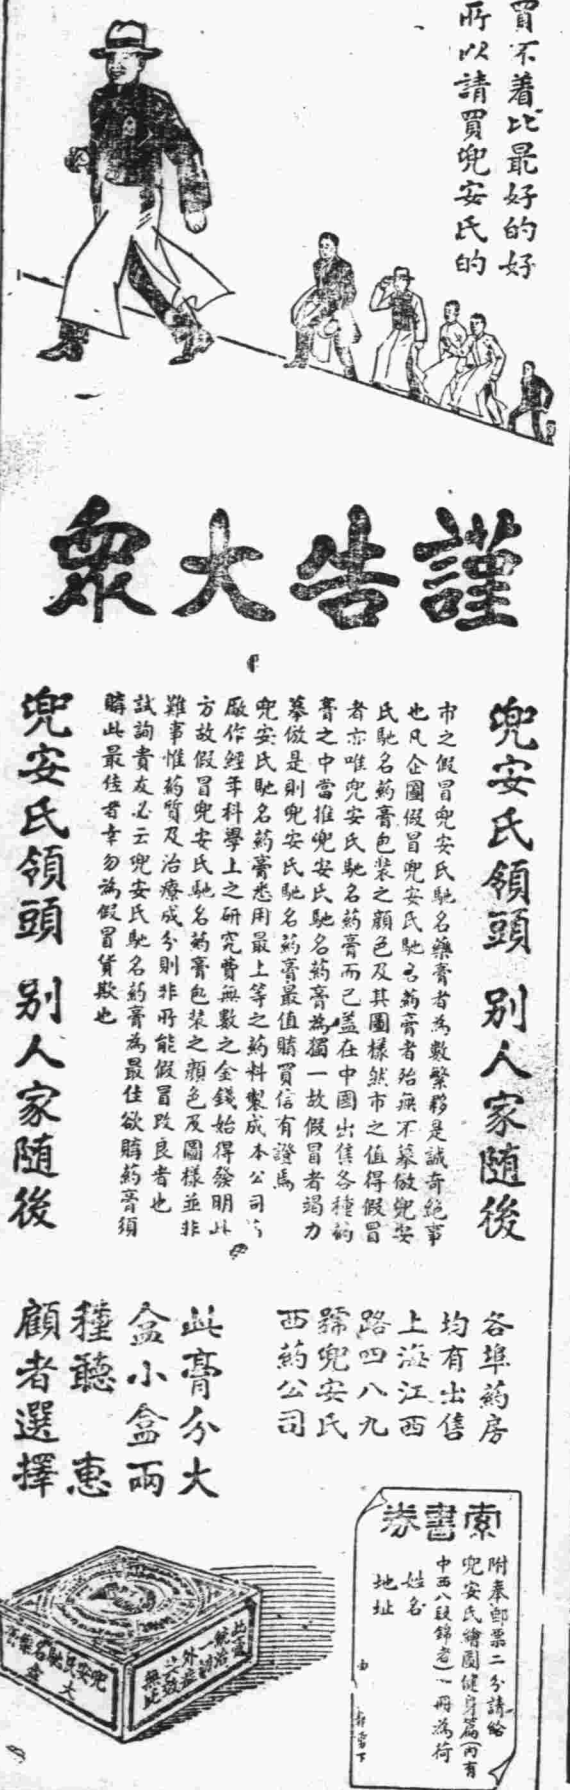 買不着比最好的好
所以請買兜安氏的
謹告大衆
兜安氏領頭 別人家随後
市之假冒兜安氏馳名藥膏者為數繁夥是誠奇絕事
也凡企圖假冒兜安氏馳名葯膏者殆無不摹倣兜安
氏馳名葯膏包裝之顏色及其圖樣然市之值得假冒
者亦唯兜安氏馳名葯膏而已蓋在中國出售各種葯
膏之中當推兜安氏馳名葯膏為獨一故假冒者竭力
摹倣是則兜安氏馳名葯膏最值購買信有證焉
兜安氏馳名葯膏悉用最上等之葯料製成本公司
廠作經年科學上之研究費無數之金錢始得發明此
方故假冒兜安氏馳名葯膏包裝之顏色及圖樣並非
難事惟葯質及治療成分則非所能假冒改良者也
試詢貴友必云兜安氏馳名葯膏為最佳欲購葯膏須
購此最佳者幸勿為假冒貨欺也
兜安氏領頭 別人家随後
各埠葯房
均有出售
上海江西
路四八九
號兜安氏
西葯公司
此膏分大
盒小盒兩
種聽 惠
顧者選擇
索書券
附奉郵票二分請給
兜安氏繪圖健身篇(內有
中西八段錦者)一冊為荷
姓名
地址
兜安氏馳名藥膏
大盒